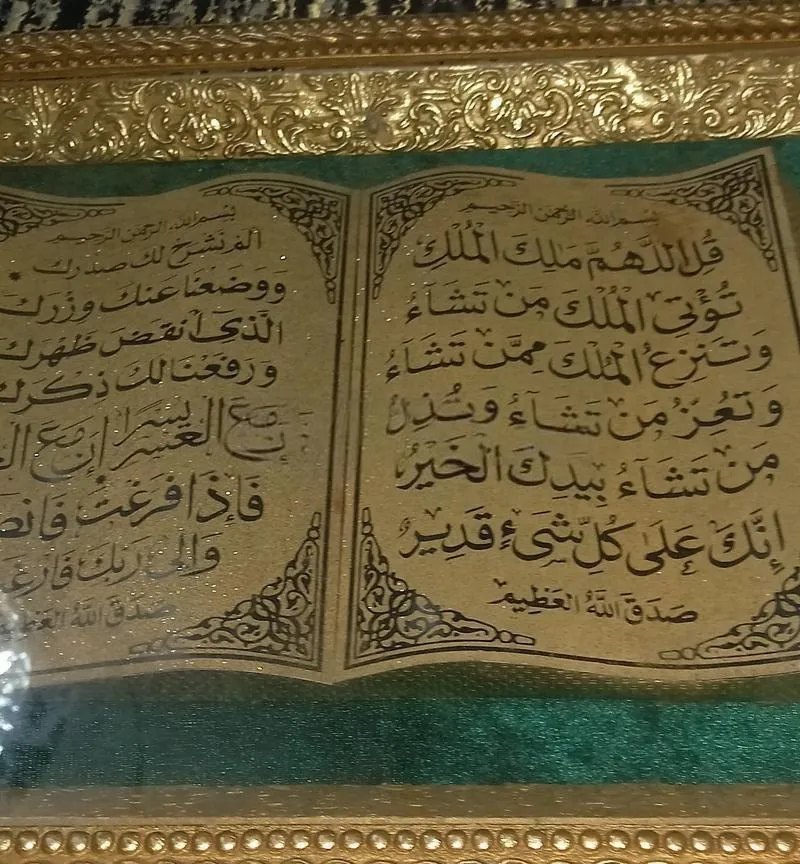 بسم الله الرحمن الرحيم
قُلِ اللَّهُمَّ مَلِكَ الْمُلْكِ
تُؤْتِى الْمُلْكَ مَنْ تَشَاءُ
وَتَنزِعُ الْمُلْكَ مِمَّنْ تَشَاءُ
وَتُعِزُّ مَنْ تَشَاءُ وَتُذِلُّ
مَنْ تَشَاءُ بِيَدِكَ الْخَيْرُ
إِنَّكَ عَلَى كُلِّ شَىْءٍ قَدِيرٌ
صَدَقَ اللَّهُ الْعَظِيمُ
بسم الله الرحمن الرحيم
أَلَمْ نَشْرَحْ لَكَ صَدْرَكَ *
وَوَضَعْنَا عَنكَ وِزْرَكَ
الَّذِى أَنقَضَ ظَهْرَكَ
وَرَفَعْنَا لَكَ ذِكْرَكَ
مَعَ الْعُسْرِ يُسْرًا إِنَّ مَعَ
فَإِذَا فَرَغْتَ
وَإِلَى رَبِّكَ
صَدَقَ اللَّهُ